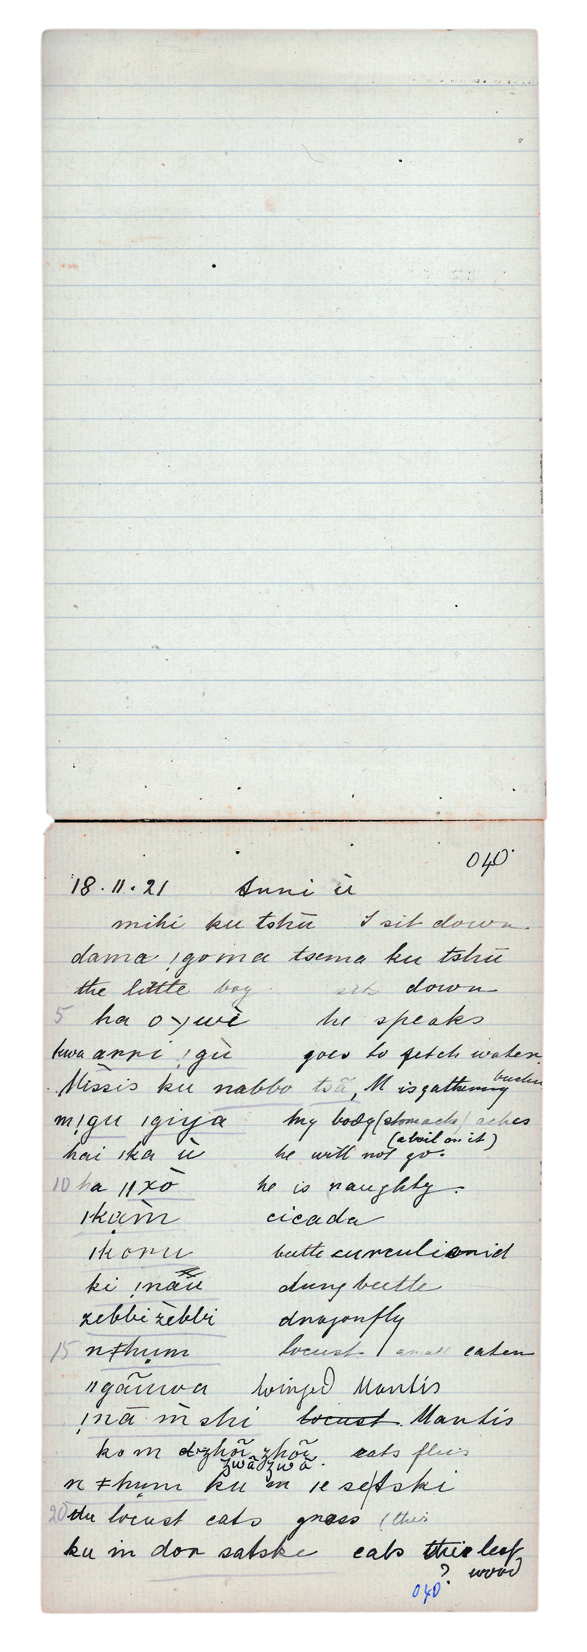 040
18.11.21 Anni ù
mihi ku tshū I sit down
dama !goma tsema ku tshū
the little boy down
5 ha o ywè he speaks
kwa anni !gù goes to fetch water
Missis ku nabbo tsā, M is gathering
m!gu ǀgiya my body (stomach) aches
(a boil on it)
hai ǀka ù he will not go.
10 ha ǁxò he is naughty.
ǀkaǹ cicada
ǀkoru beetle curculionid
ki !nāū dung beetle
zebbi zebbi dragonfly
15 nǂhum locust small eaten
ǁgāuwa winged Mantis
!nā m̀ shi locust Mantis
kom zhõĩ eats flies
zwā zwā.
nǂhum ku m ie setski
20 the locust eats grass (this
ku m dor satske eats this leaf
? wood
040